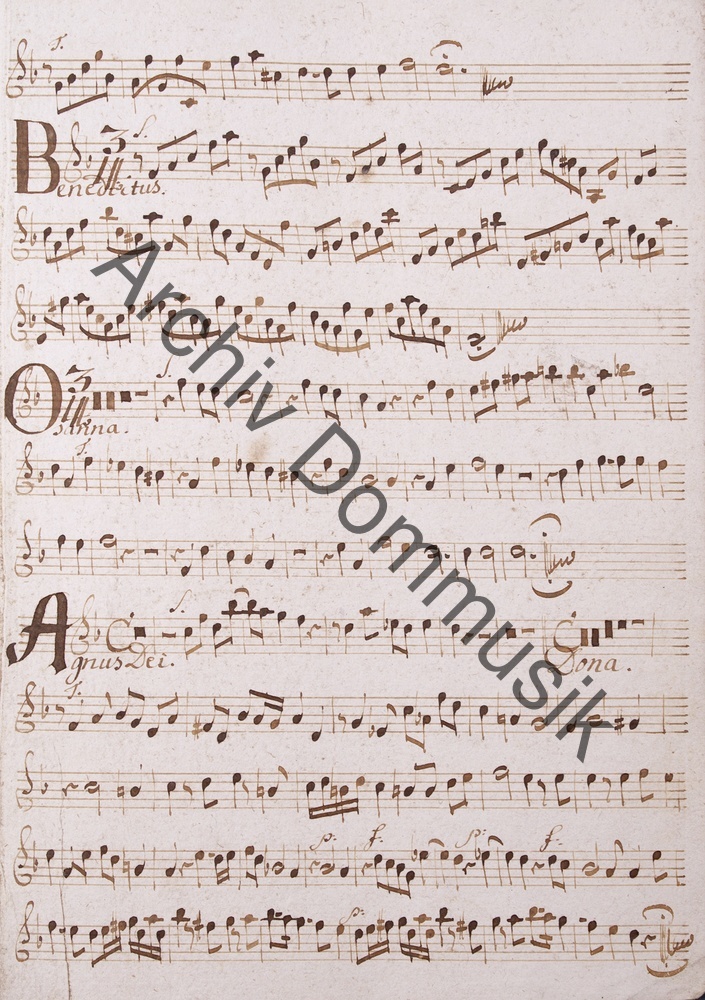 T.
3 S.
Benedictus.
3 S.
Osanna.
T.
S.
Agnus Dei.
Dona.
T.
p: f. p: f.
p:
Archiv Dommusik